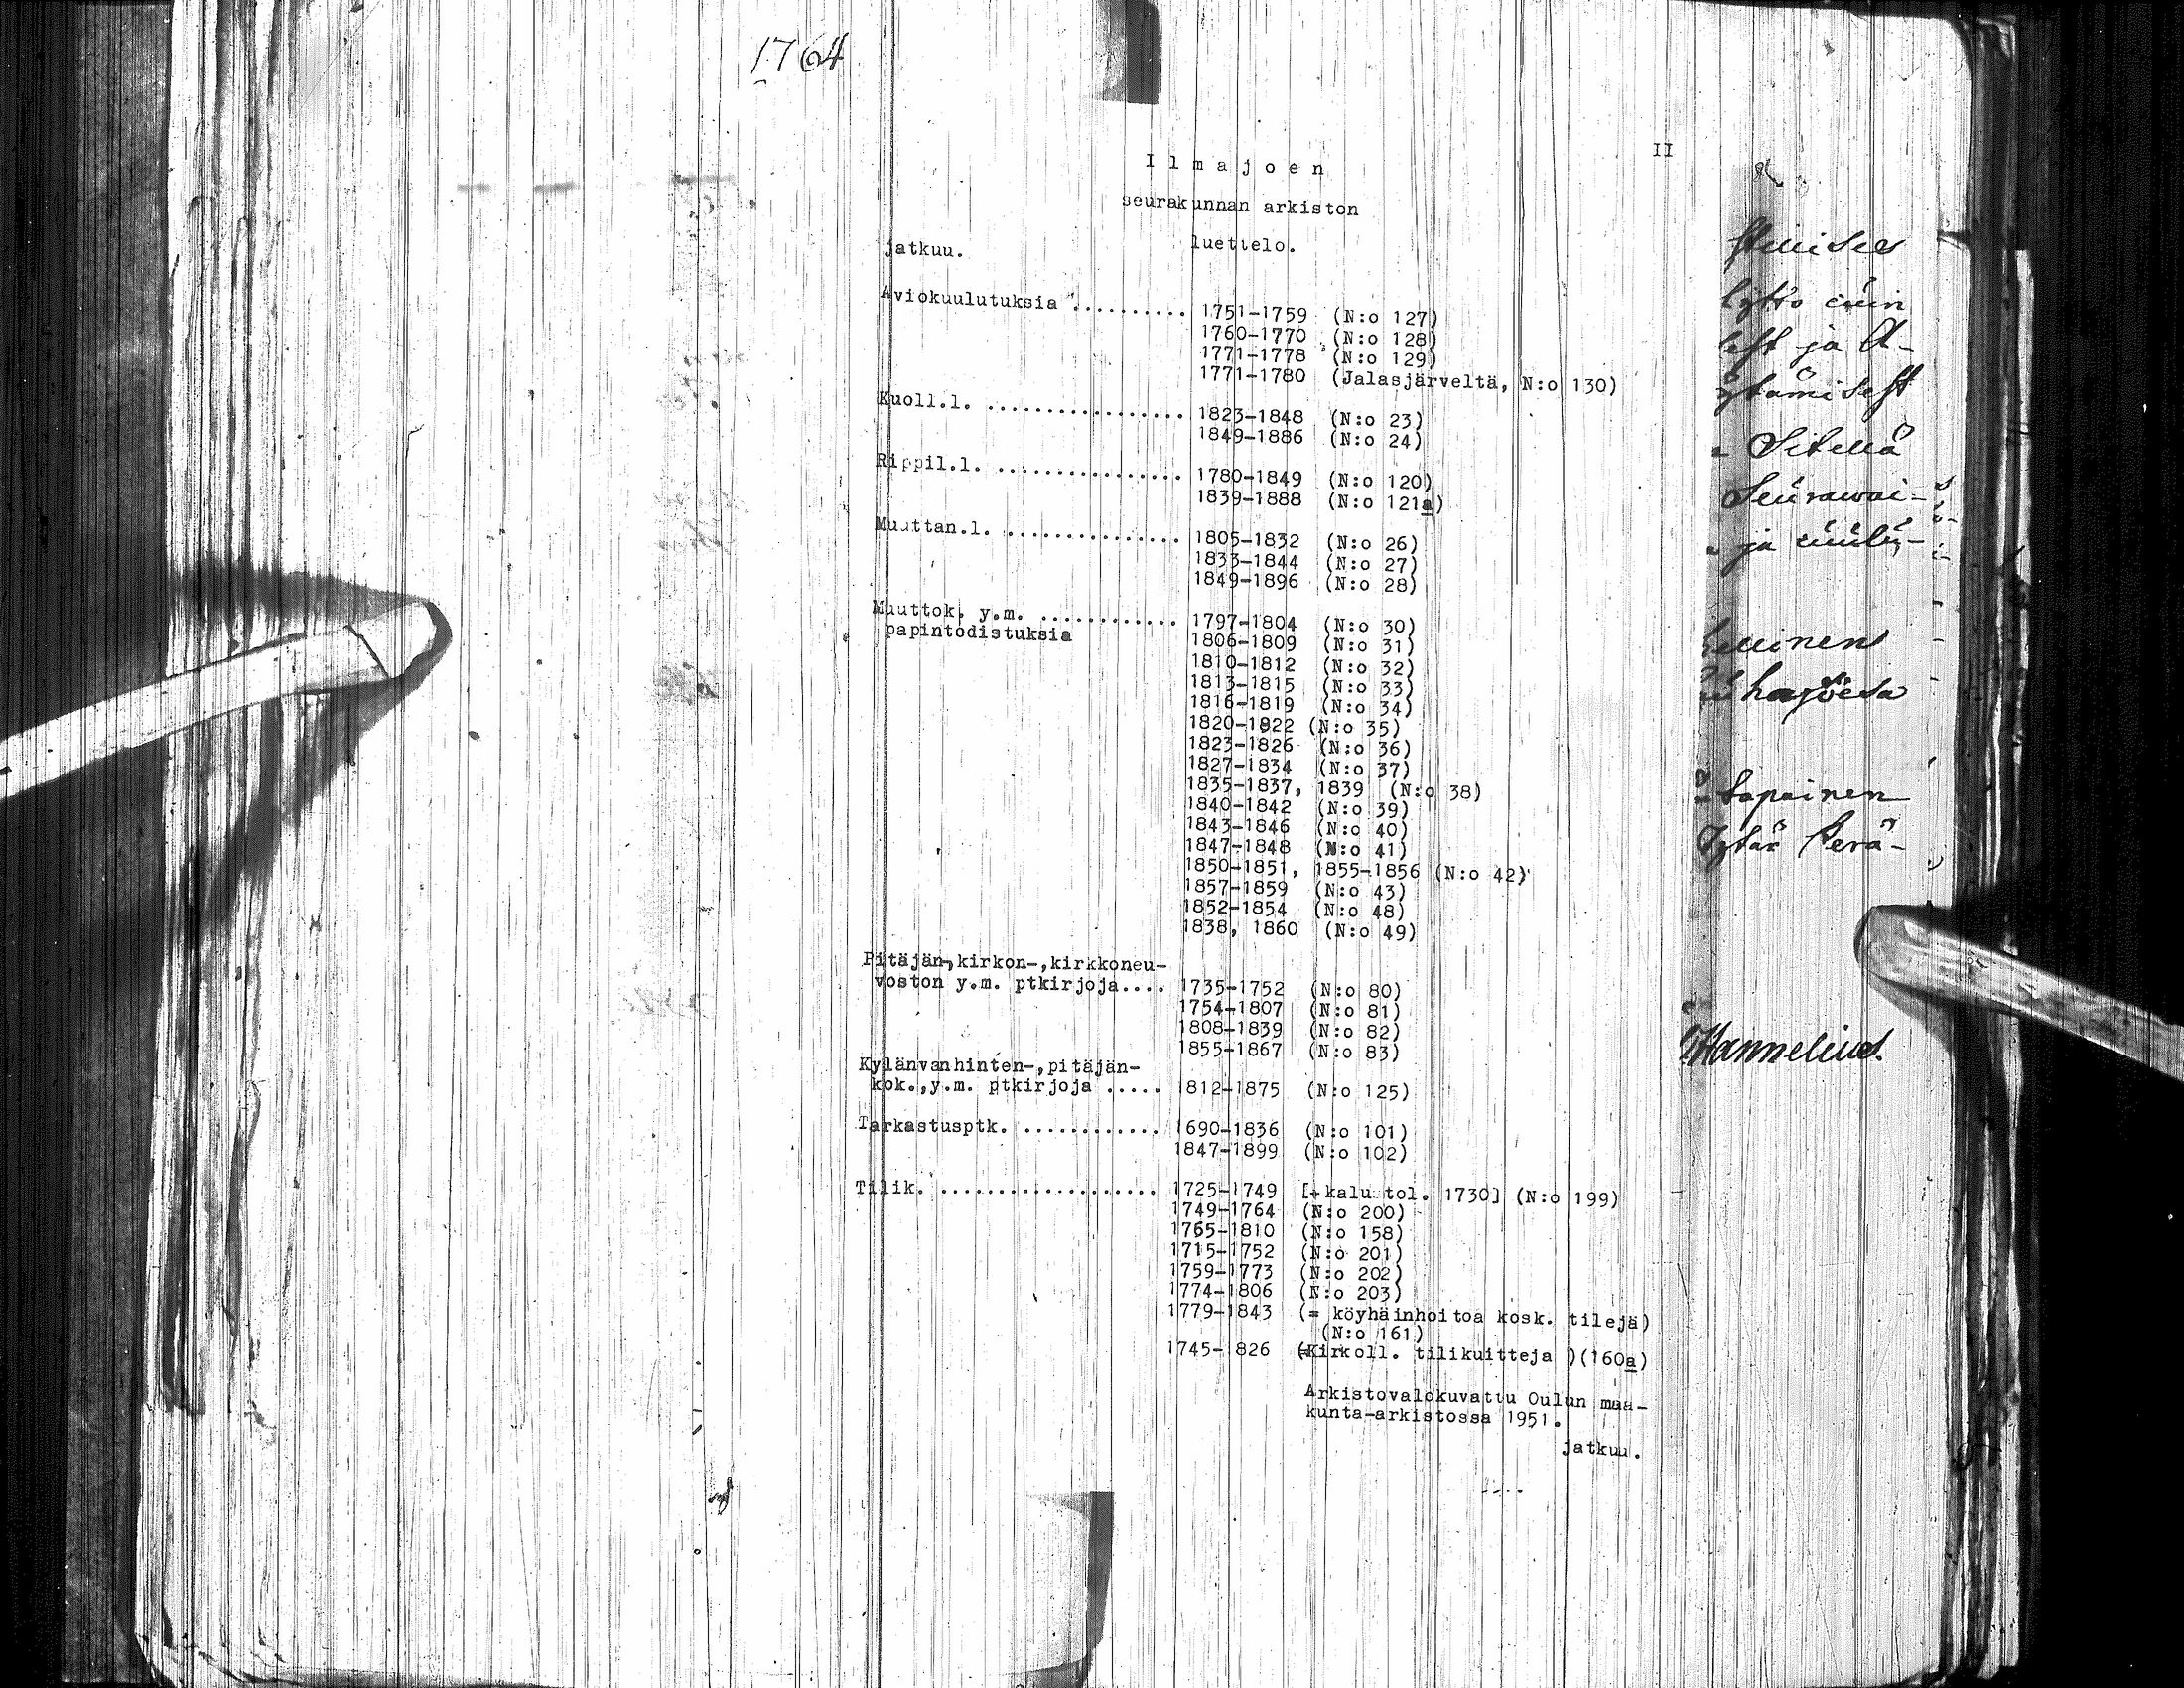 1764
II
Ilmajoen
seurakunnan arkiston
luettelo.
jatkuu.
Aviokuulutuksia .......... 1751-1759 (N:o 127)
1760-1770 (N:o 128)
1771-1778 (N:o 129)
1771-1780 (Jalasjärveltä, N:o 130)
Kuoll.l. ................ 1823-1848 (N:o 23)
1849-1886 (N:o 24)
Rippil.l. ............... 1780-1849 (N:o 120)
1839-1888 (N:o 121a)
Muuttan.l. ............... 1805-1832 (N:o 26)
1833-1844 (N:o 27)
1849-1896 (N:o 28)
Muuttok. y.m. ............ 1797-1804 (N:o 30)
papintodistuksia 1806-1809 (N:o 31)
1810-1812 (N:o 32)
1813-1815 (N:o 33)
1816-1819 (N:o 34)
1820-1822 (N:o 35)
1823-1826 (N:o 36)
1827-1834 (N:o 37)
1835-1837, 1839 (N:o 38)
1840-1842 (N:o 39)
1843-1846 (N:o 40)
1847-1848 (N:o 41)
1850-1851, 1855-1856 (N:o 42)
1857-1859 (N:o 43)
1852-1854 (N:o 48)
1838, 1860 (N:o 49)
Pitäjän-,kirkon-,kirkkoneu-
voston y.m. ptkirjoja.... 1735-1752 (N:o 80)
1754-1807 (N:o 81)
1808-1839 (N:o 82)
1855-1867 (N:o 83)
Kylänvanhinten-,pitäjän-
kok.,y.m. ptkirjoja ..... 1812-1875 (N:o 125)
Tarkastusptk. ............ 1690-1836 (N:o 101)
1847-1899 (N:o 102)
Tilik. ................... 1725-1749 [+ kalu tol. 1730] (N:o 199)
1749-1764 (N:o 200)
1765-1810 (N:o 158)
1715-1752 (N:o 201)
1759-1773 (N:o 202)
1774-1806 (N:o 203)
1779-1843 (= köyhäinhoitoa kosk. tilejä)
(N:o 161)
1745-1826 (=Kirkoll. tilikuitteja )(160a)
Arkistovalokuvattu Oulun maa-
kunta-arkistossa 1951.
jatkuu.
ja A-
Sitellä
Seurawai-
ja
tapainen
Perä-
Hannelius.